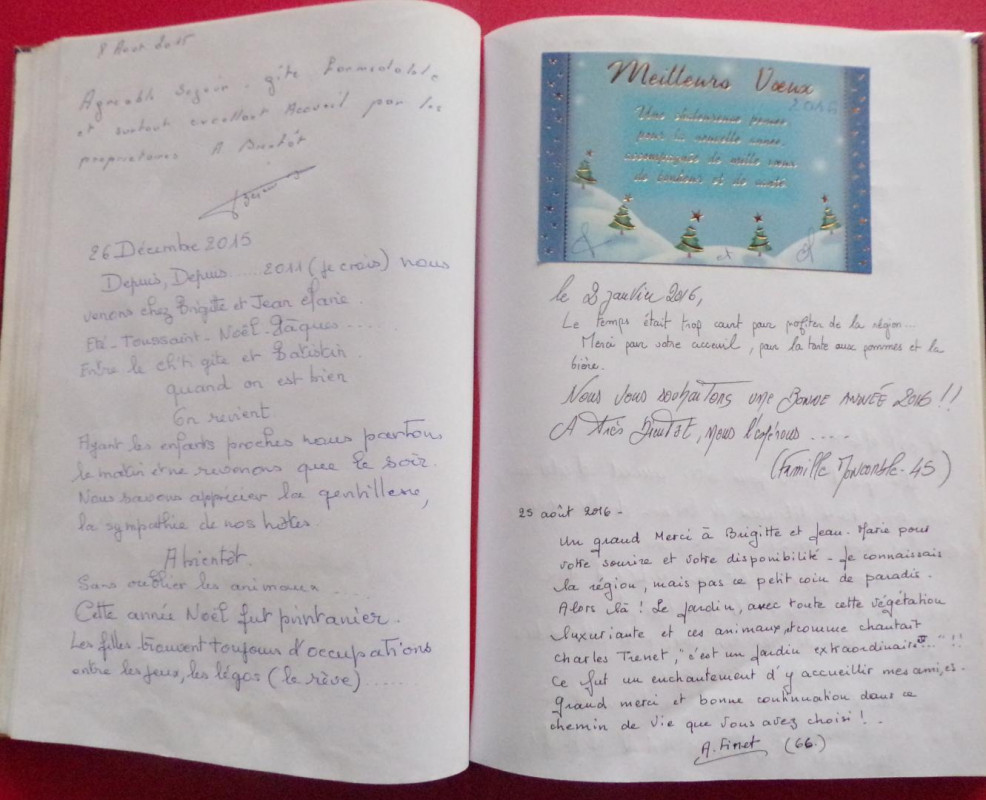 8 Aout 2015
Agreable Sejour. gîte Formidable
et surtout excellent Accueil par les
proprietaires A Bientôt
26 Décembre 2015
Depuis, Depuis...... 2011 (je crois) nous
venons chez Brigitte et Jean Marie.
Eté - Toussaint - Noël - Pâques.....
Entre le ch'ti gite et Batistin
quand on est bien
On revient.
Ayant les enfants proches nous partons
le matin et ne revenons que le soir.
Nous savons apprécier la gentillesse,
la sympathie de nos hôtes.
A bientôt.
Sans oublier les animaux
Cette année Noël fut printanier.
Les filles trouvent toujours d'occupations
entre les jeux, les légos (le rêve).......
Meilleurs Vœux
2016
Une chaleureuse pensée,
pour la nouvelle année,
accompagnée de mille vœux
de bonheur et de santé.
et
le 2 janvier 2016,
Le temps était trop court pour profiter de la région...
Merci pour votre accueil, pour la tarte aux pommes et la
bière.
Nous vous souhaitons une BONNE ANNÉE 2016 !!
A très bientôt, nous l'espérons ....
(Famille - 45)
25 août 2016 -
Un grand Merci à Brigitte et Jean-Marie pour
votre sourire et votre disponibilité - Je connaissais
la région, mais pas ce petit coin de paradis.
Alors là ! Le Jardin, avec toute cette végétation
luxuriante et ces animaux, et comme chantait
Charles Trenet, "c'est un Jardin extraordinaire..." !!
Ce fut un enchantement d'y accueillir mes ami,es.
Grand merci et bonne continuation dans ce
chemin de vie que vous avez choisi ! -
A. Finet (66.)